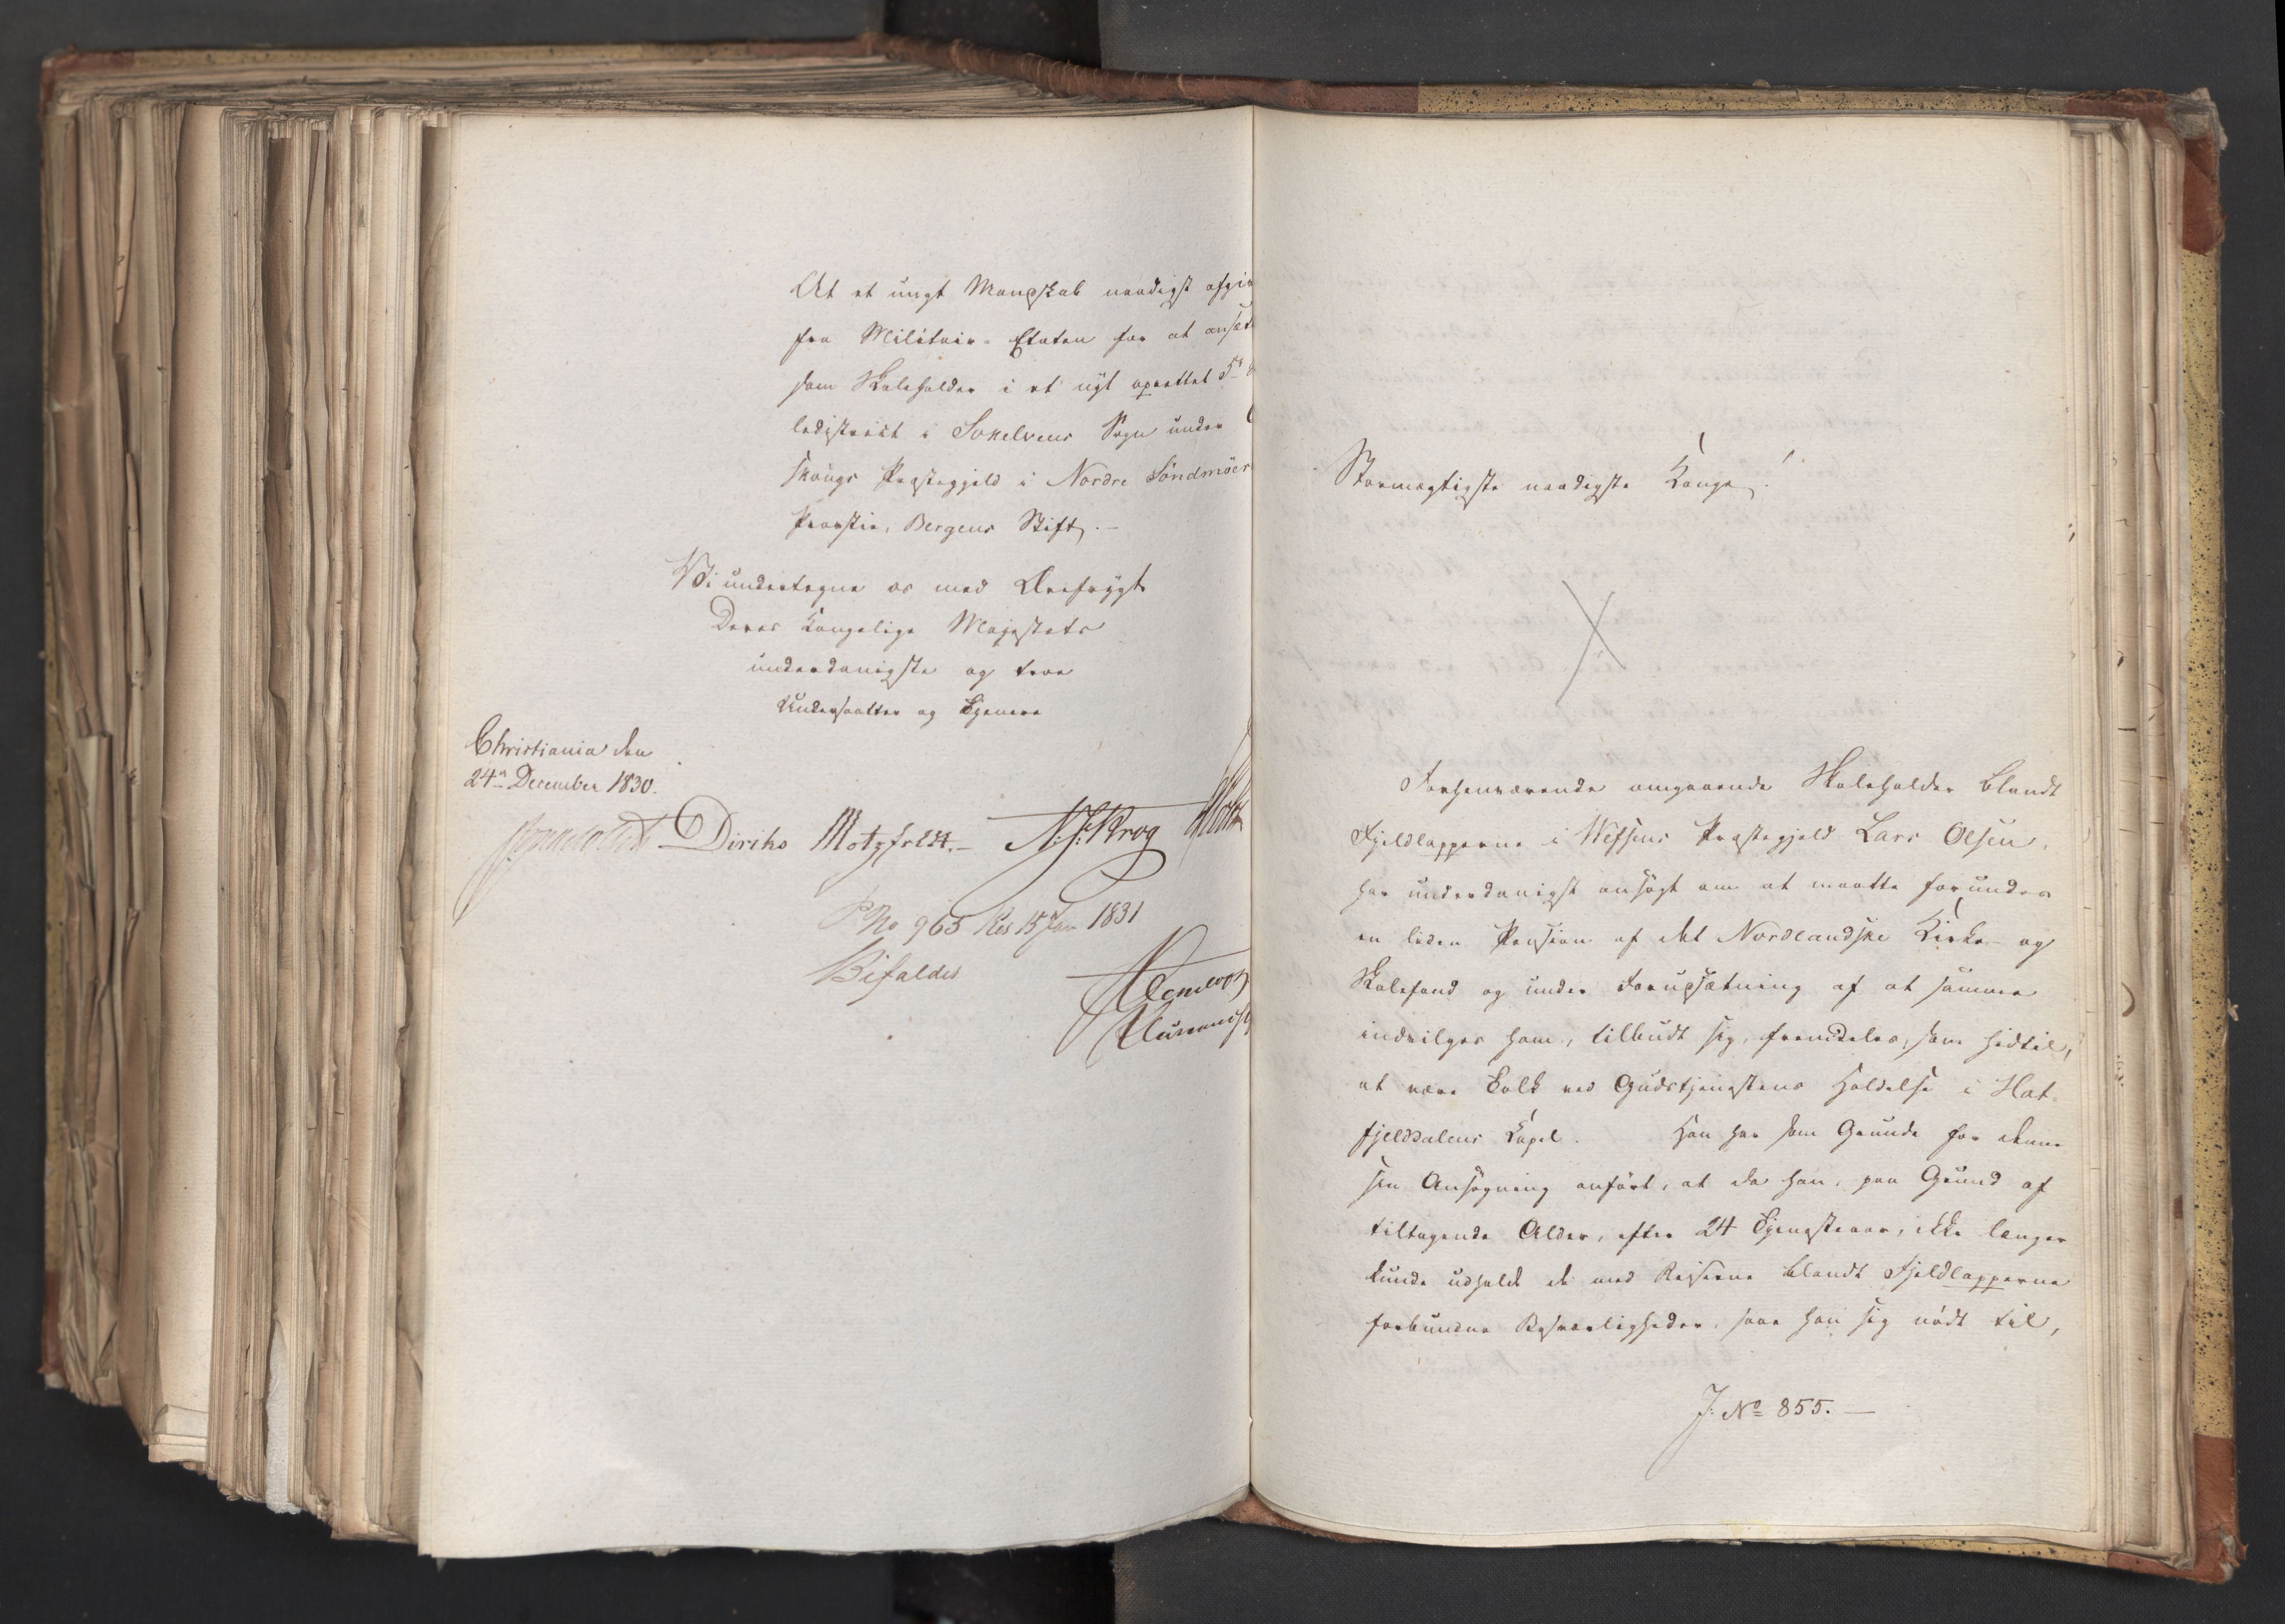 At et ungt Mandskab naadigst afgiv
fra Militair-Etaten for at ansæt
som Skoleholder i et nyt oprettet 5te
ledistrict i Sokelvens Sogn under
skougs Præstegjeld i Nordre Söndmöers
Provstie, Bergens Stift. —
Vi undertegne os med Ærefrygt
Deres Kongelige Majestæts
underdanigste og troe
Undersaatter og Tjenere
Christiania den
24de December 1830.
Diriks Motzfeldt. — N. J. Krog Holst
P. No 965 Res 15 Jan 1831
Bifaldes
Stormægtigste naadigste Konge!
Forhenværende omgaaende Skoleholder blandt
Fjeldlapperne i Wefsens Præstegjeld Lars Olsen,
har underdanigst ansøgt om at maatte forundes
en liden Pension af det Nordlandske Kirke- og
Skolefond og under Forudsætning af at samme
indvilges ham, tilbudt sig, fremdeles, som hidtil,
at være Tolk ved Gudstjenestens Holdelse i Hat-
fjelddalens Capel. Han har som Grunde for denne
sin Ansøgning anført, at da han, paa Grund af
tiltagende Alder, efter 24 Tjenesteaar, ikke længer
kunde udholde de med Reiserne blandt Fjeldlapperne
forbundne Besværligheder, saae han sig nødt til,
J: No 855. —